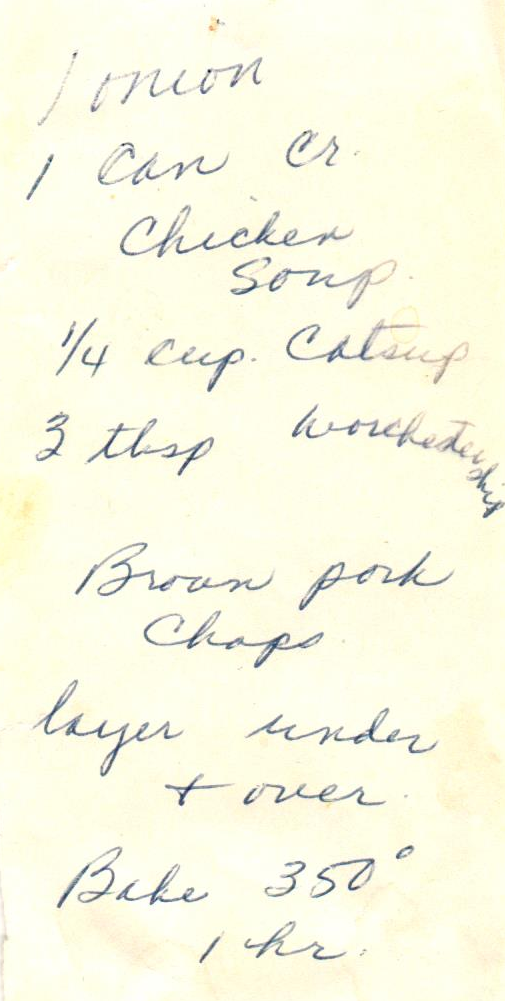 1 onion
1 Can Cr.
Chicken
Soup.
1/4 cup. Catsup
3 tbsp Worchestership
Brown pork
Chops.
layer under
+ over.
Bake 350°
1 hr.